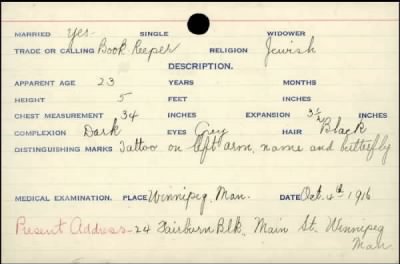 MARRIED Yes- SINGLE WIDOWER
TRADE OR CALLING Book Keeper RELIGION Jewish
DESCRIPTION.
APPARENT AGE 23 YEARS MONTHS
HEIGHT 5 FEET INCHES
CHEST MEASUREMENT 34 INCHES EXPANSION 3½ INCHES
COMPLEXION Dark EYES Grey HAIR Black
DISTINGUISHING MARKS Tattoo on left arm, name and butterfly
MEDICAL EXAMINATION. PLACE Winnipeg, Man. DATE Oct. 4th 1916
Present Address - 24 Fairburn Blk, Main St. Winnipeg
Man.